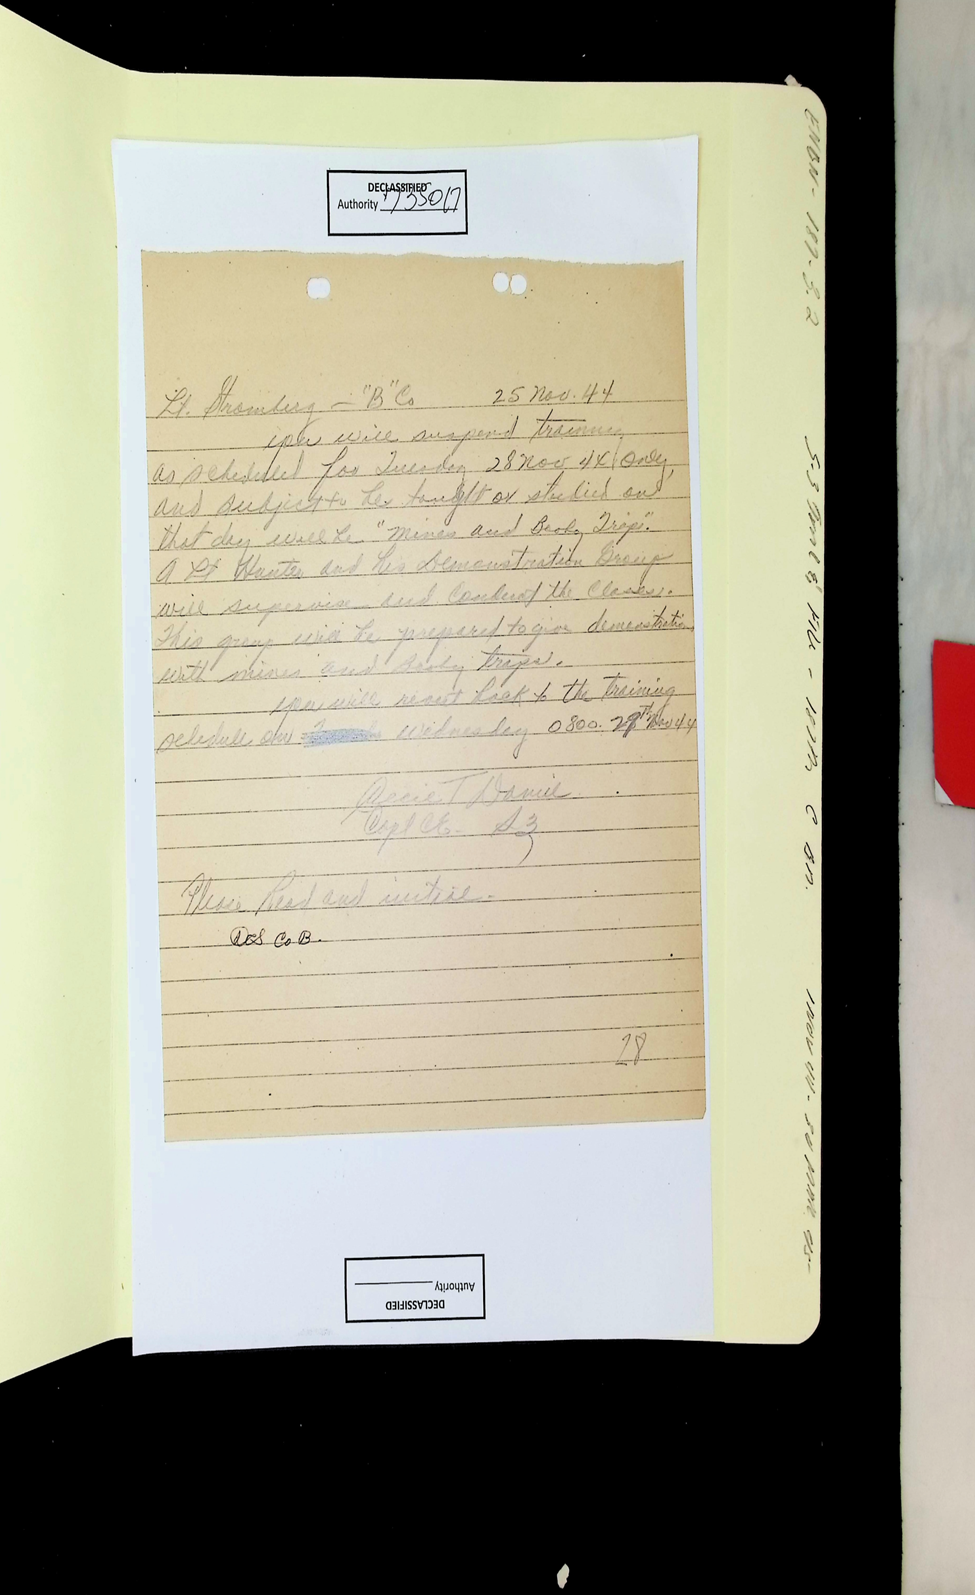 DECLASSIFIED
Authority 735017
Lt. Stromberg — "B" Co 25 Nov. 44
you will suspend training
as scheduled for Tuesday 28 Nov 44 (only)
and subject to be taught or studied on
that day will be "Mines and Booby Traps".
A Lt Hunter and his Demonstration Group
will supervise and Conduct the Classes.
This group will be prepared to give demonstration
with mines and Booby traps.
you will revert back to the training
schedule on Wednesday 0800. 29th Nov 44
T Daniel
S3
Please Read and initial.
DCS Co B.
28
DECLASSIFIED
Authority
ENBN - 187 - 3.2 S-3 "Journal" FILE - 187th C BN. 1 NOV 44 - 30 MAR 45